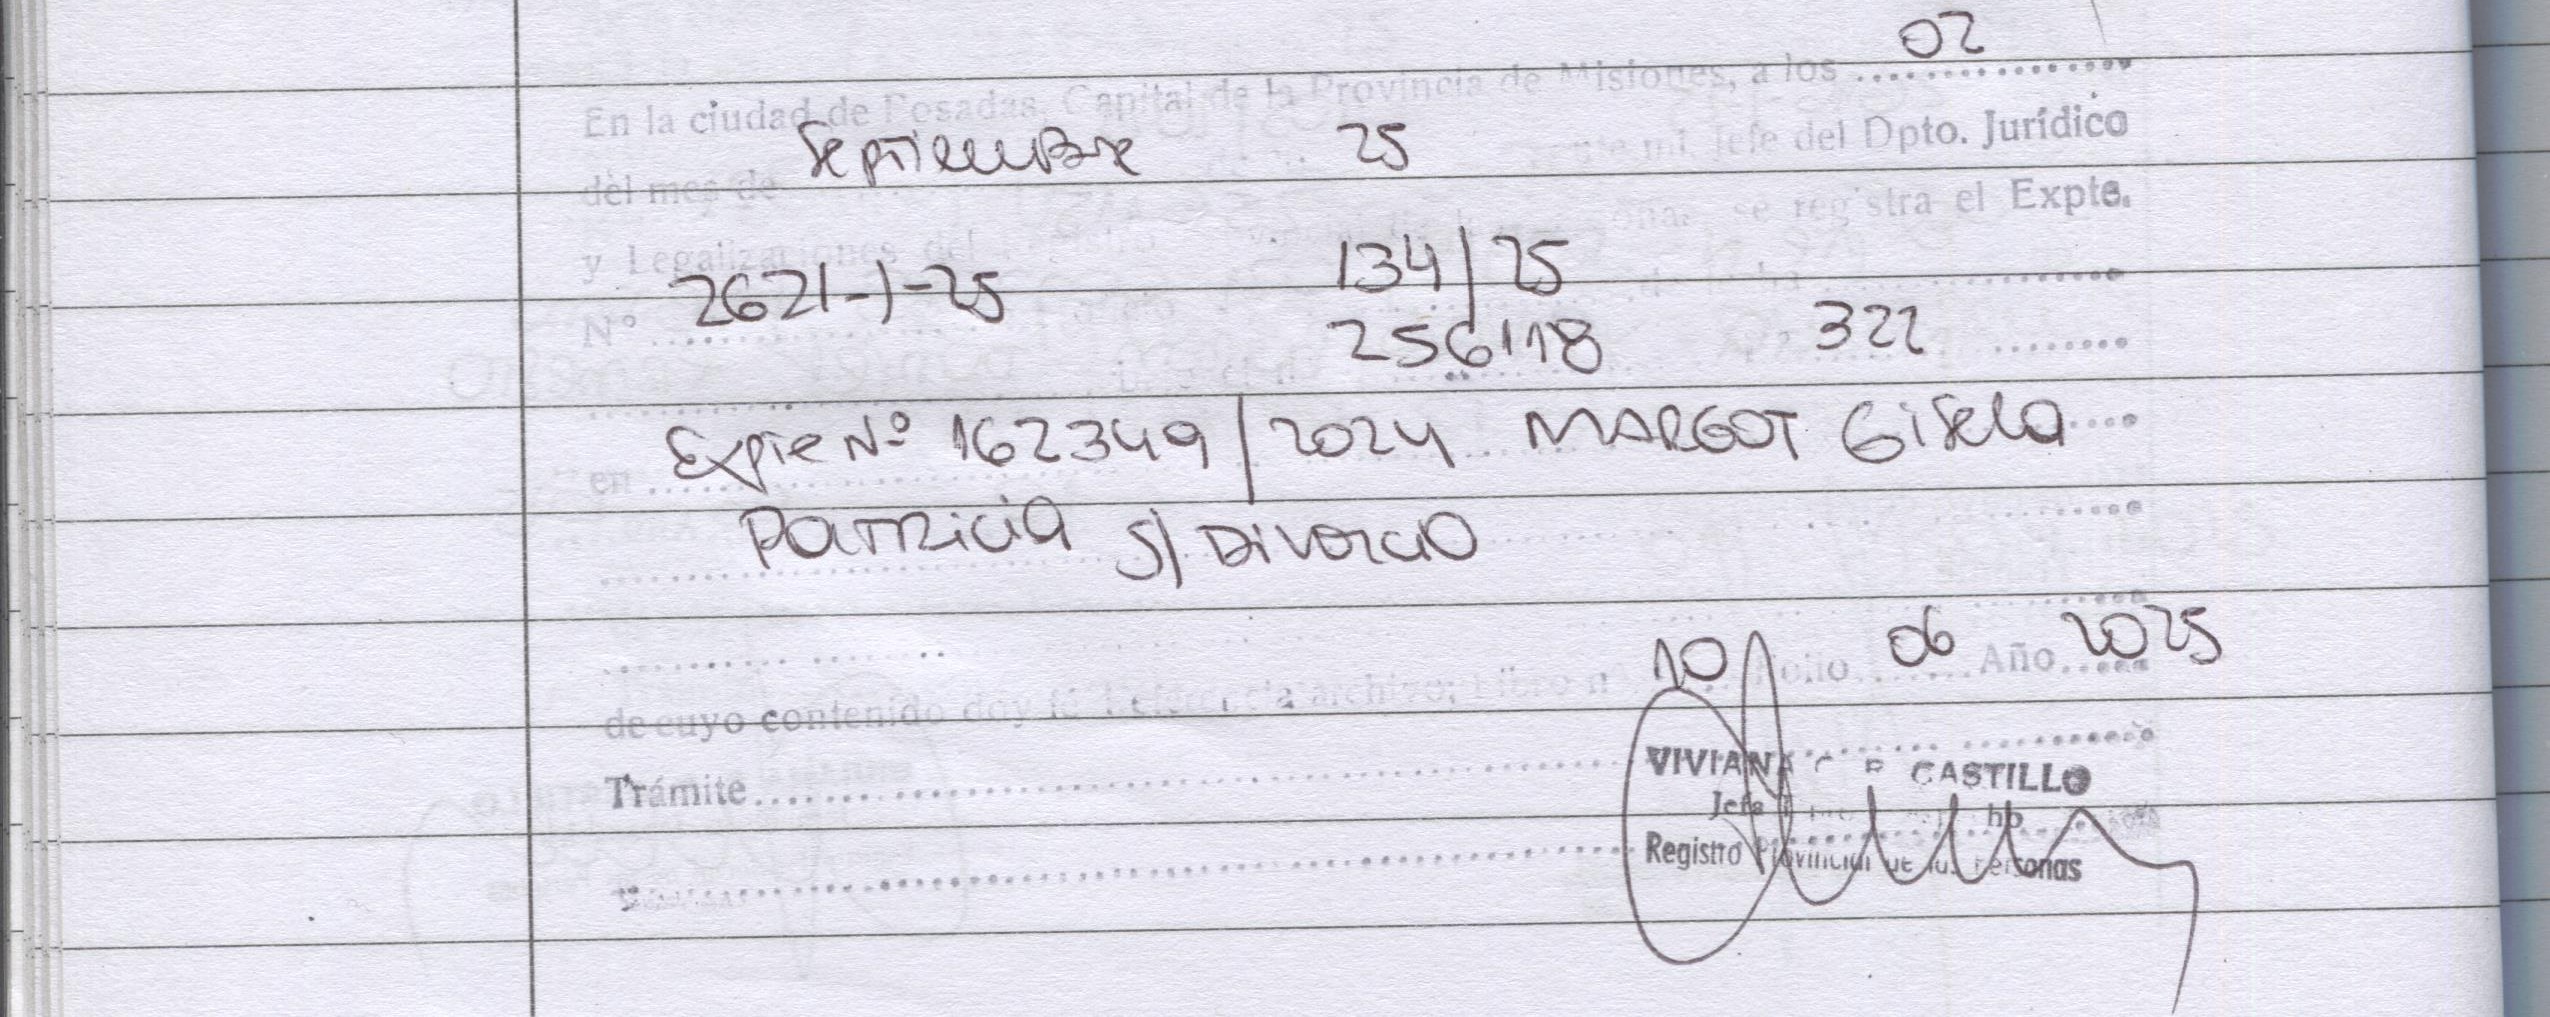 02
En la ciudad de Posadas, Capital de la Provincia de Misiones, a los
Septiembre 25
del mes de mi Jefe del Dpto. Jurídico
y Legalizaciones del se registra el Expte.
2621-J-25 134/25
Nº
256118 322
Expte Nº 162349/2024 MARGOT Gisela
en
Patricia S/ Divorcio
10 06 2025
de cuyo contenido doy fé Referencia archivo: Libro nº Folio Año
VIVIANA CASTILLO
Trámite
Jefa
Registro Provincial de las Personas